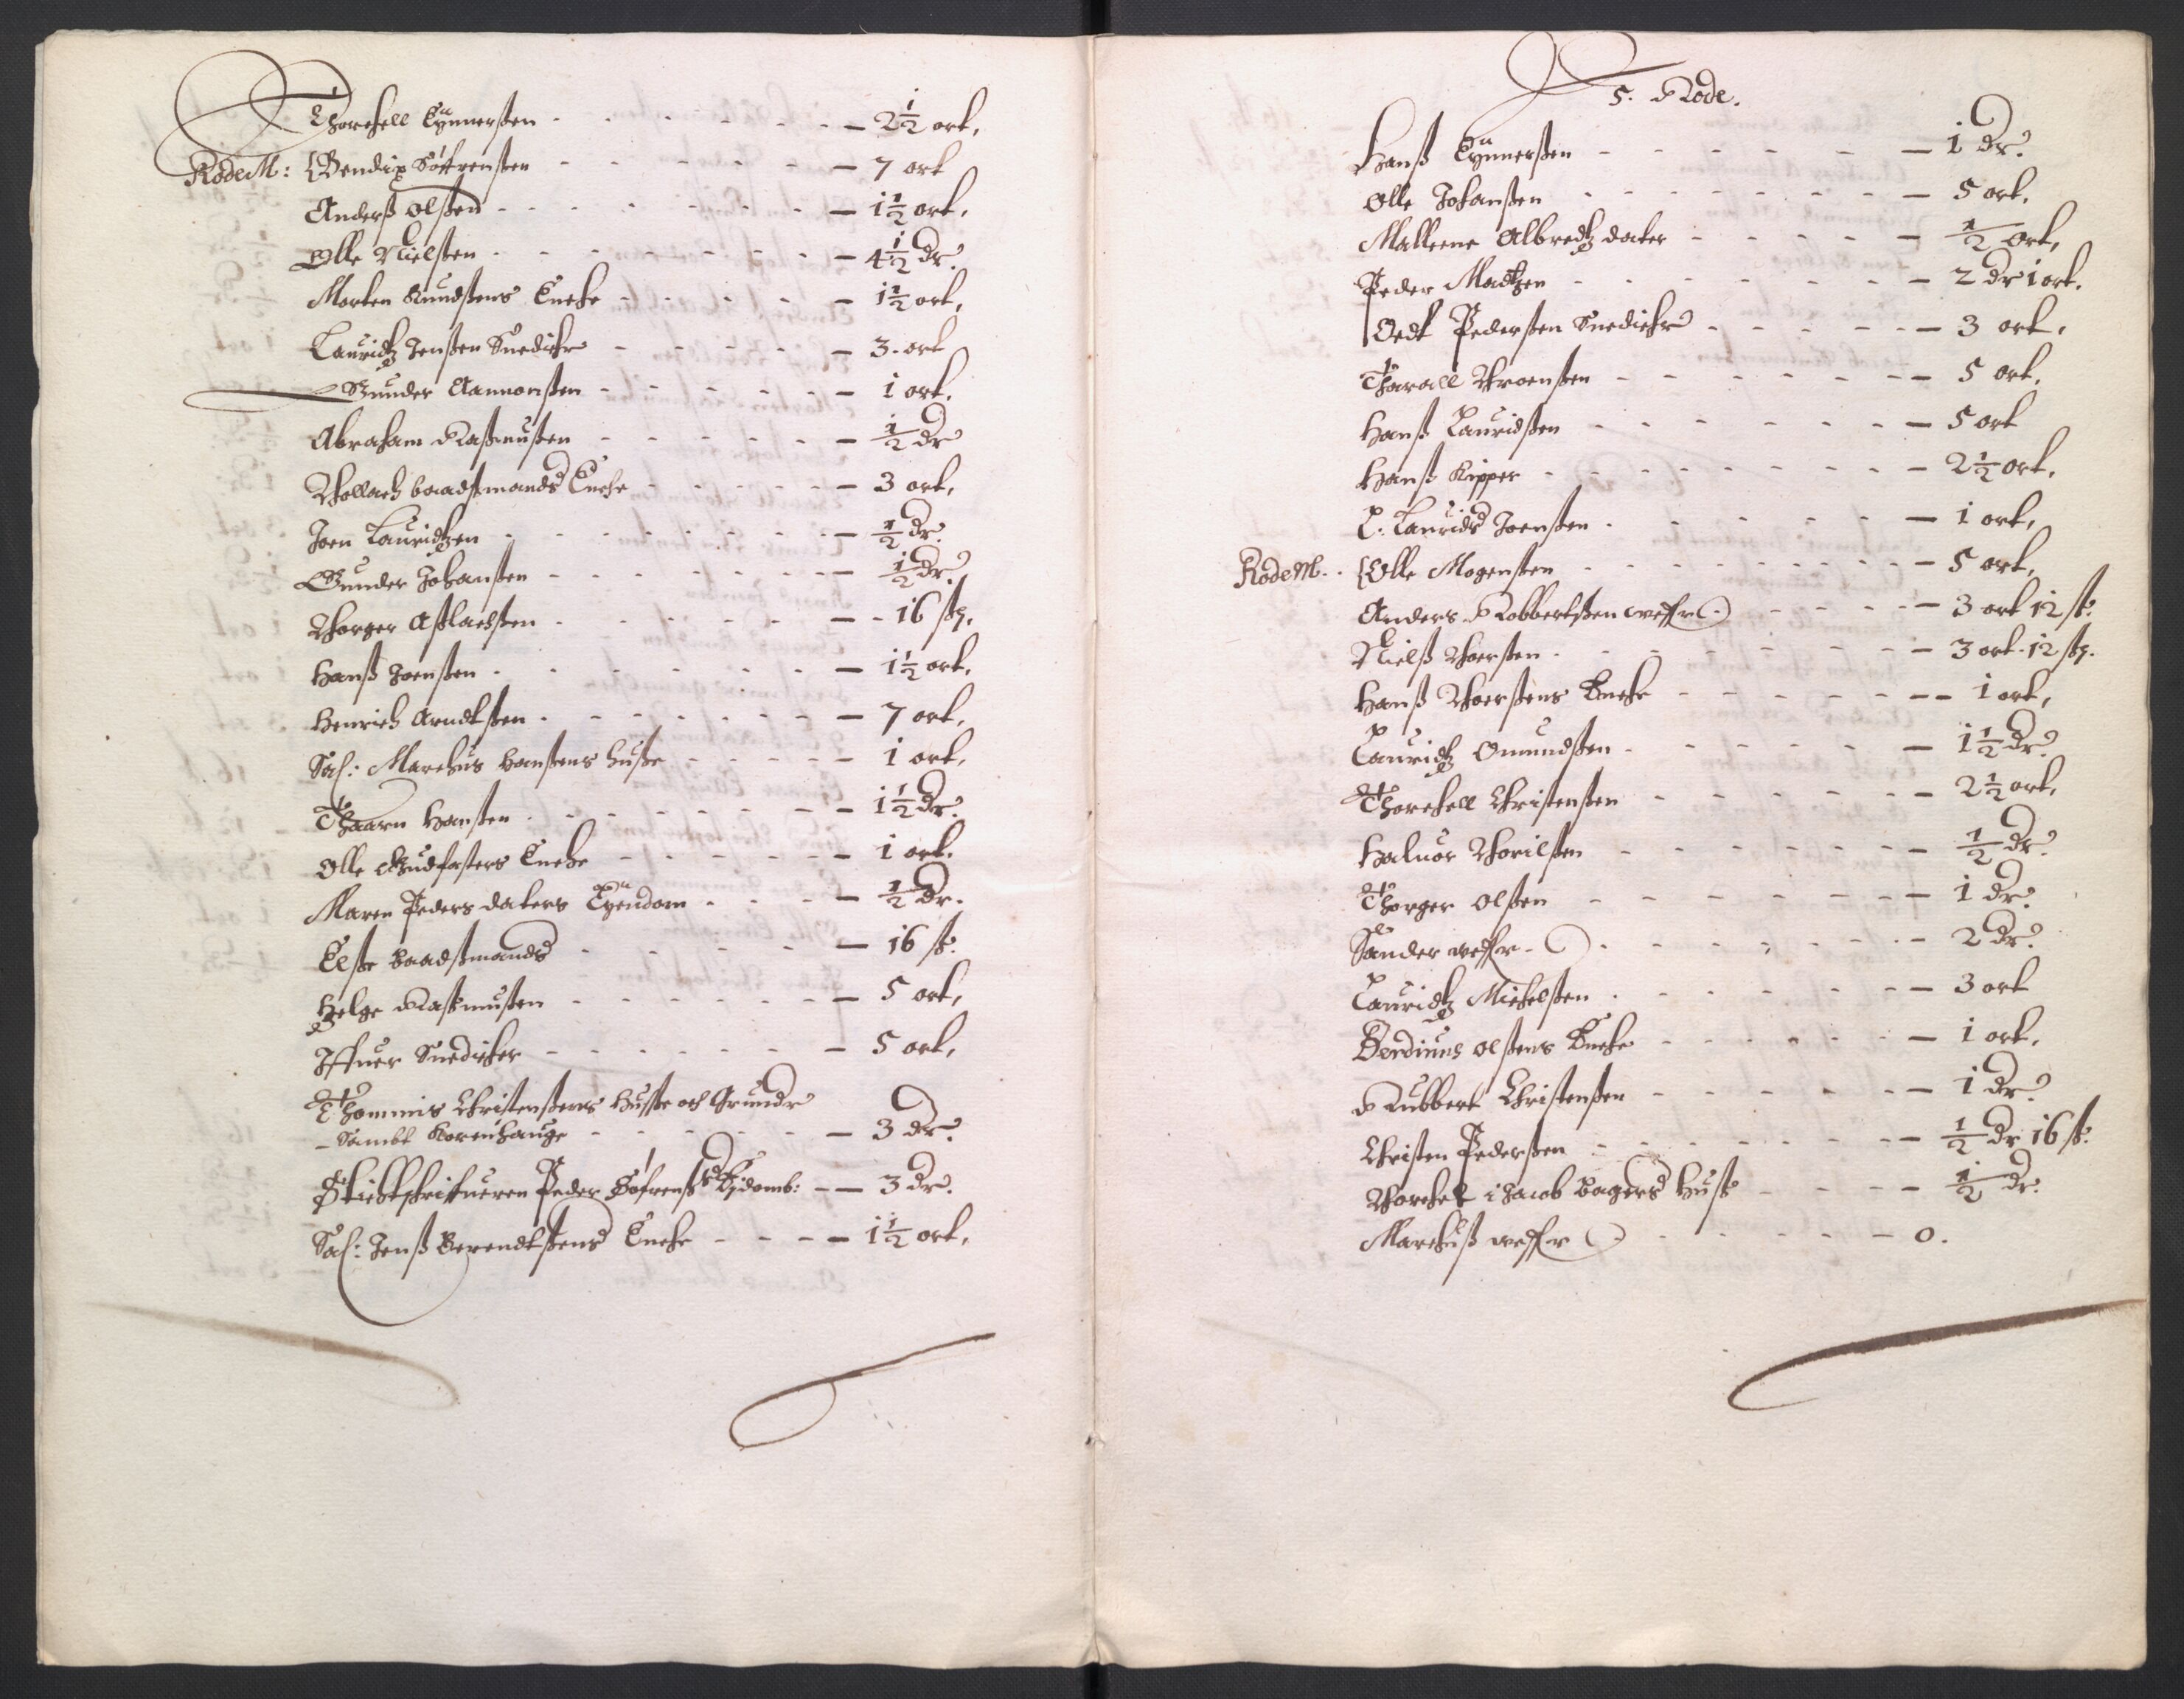 Thorchell Gÿnnerßen - 2½ ort.
RodeM: Bendix Söffrenßen - 7 ort
Anderß Olßen - 1½ ort.
Olle Nielßen - 4½ dr.
Morten Knudßens Encke - 1½ ort.
Lauridtz Jenßen Snedicher - 3. ort
Gunder Aamonßen - 1 ort.
Abraham Raßmußen - ½ dr
Thollach baadßmands Encke - 3 ort.
Joen Lauridtzen - ½ dr.
Gunder Johanßen - ½ dr.
Thorger Aßlachßen - 16 ß.
Hanß Joenßen - 1½ ort.
Henrich Arndtßen - 7 ort.
Sal: Marchus Hanßens huße - 1 ort.
Thaarn Hanßen - 1½ dr.
Olle Gudfasters Encke - 1 ort.
Maren Peders daters Eÿendom - ½ dr.
Elße Baadßmands - 16 ß.
Helge Raßmußen - 5 ort.
Iffuer Snedicker - 5 ort.
Thommis Christenßens Huße och Grundr
Sambt Koren hauge - 3 dr.
Stichtschriffueren Peder Söfrenß - 3 dr.
Sal: Jenß Berendtßens Encke - 1½ ort.
5. Rode.
Hanß Gÿnnerßen - 1 dr.
Olle Johanßen - 5 ort.
Malleene Albredtz dater - ½ ort.
Peder Madtzen - 2 dr 1 ort.
Oedt Pederßen Snedicher - 3 ort.
Tharall Throenßen - 5 ort.
Hanß Lauridßen - 5 ort
Hanß Kipper - 2½ ort.
L: Laurids Joenßen - 1 ort.
RodeM. Olle Mogenßen - 5 ort.
Anders Robbertßen weffr - 3 ort 12 ß.
Nielß Thoerßen - 3 ort. 12 ß.
Hanß Thoerßens Encke - 1 ort.
Lauridtz Omundßen - 1½ dr.
Thorchell Christenßen - 2½ ort.
Haluor Thorilßen - ½ dr.
Thorger Olßen - 1 dr.
Sander weffr - 2 dr.
Lauridtz Michelßen - 3 ort
Berdinus Olßens Encke - 1 ort.
Rubbert Christenßen - 1 dr.
Christen Pederßen - ½ dr 16 ß.
Thorchel i Jacob Bagers Huß - ½ dr.
Marchuß weffr - 0.